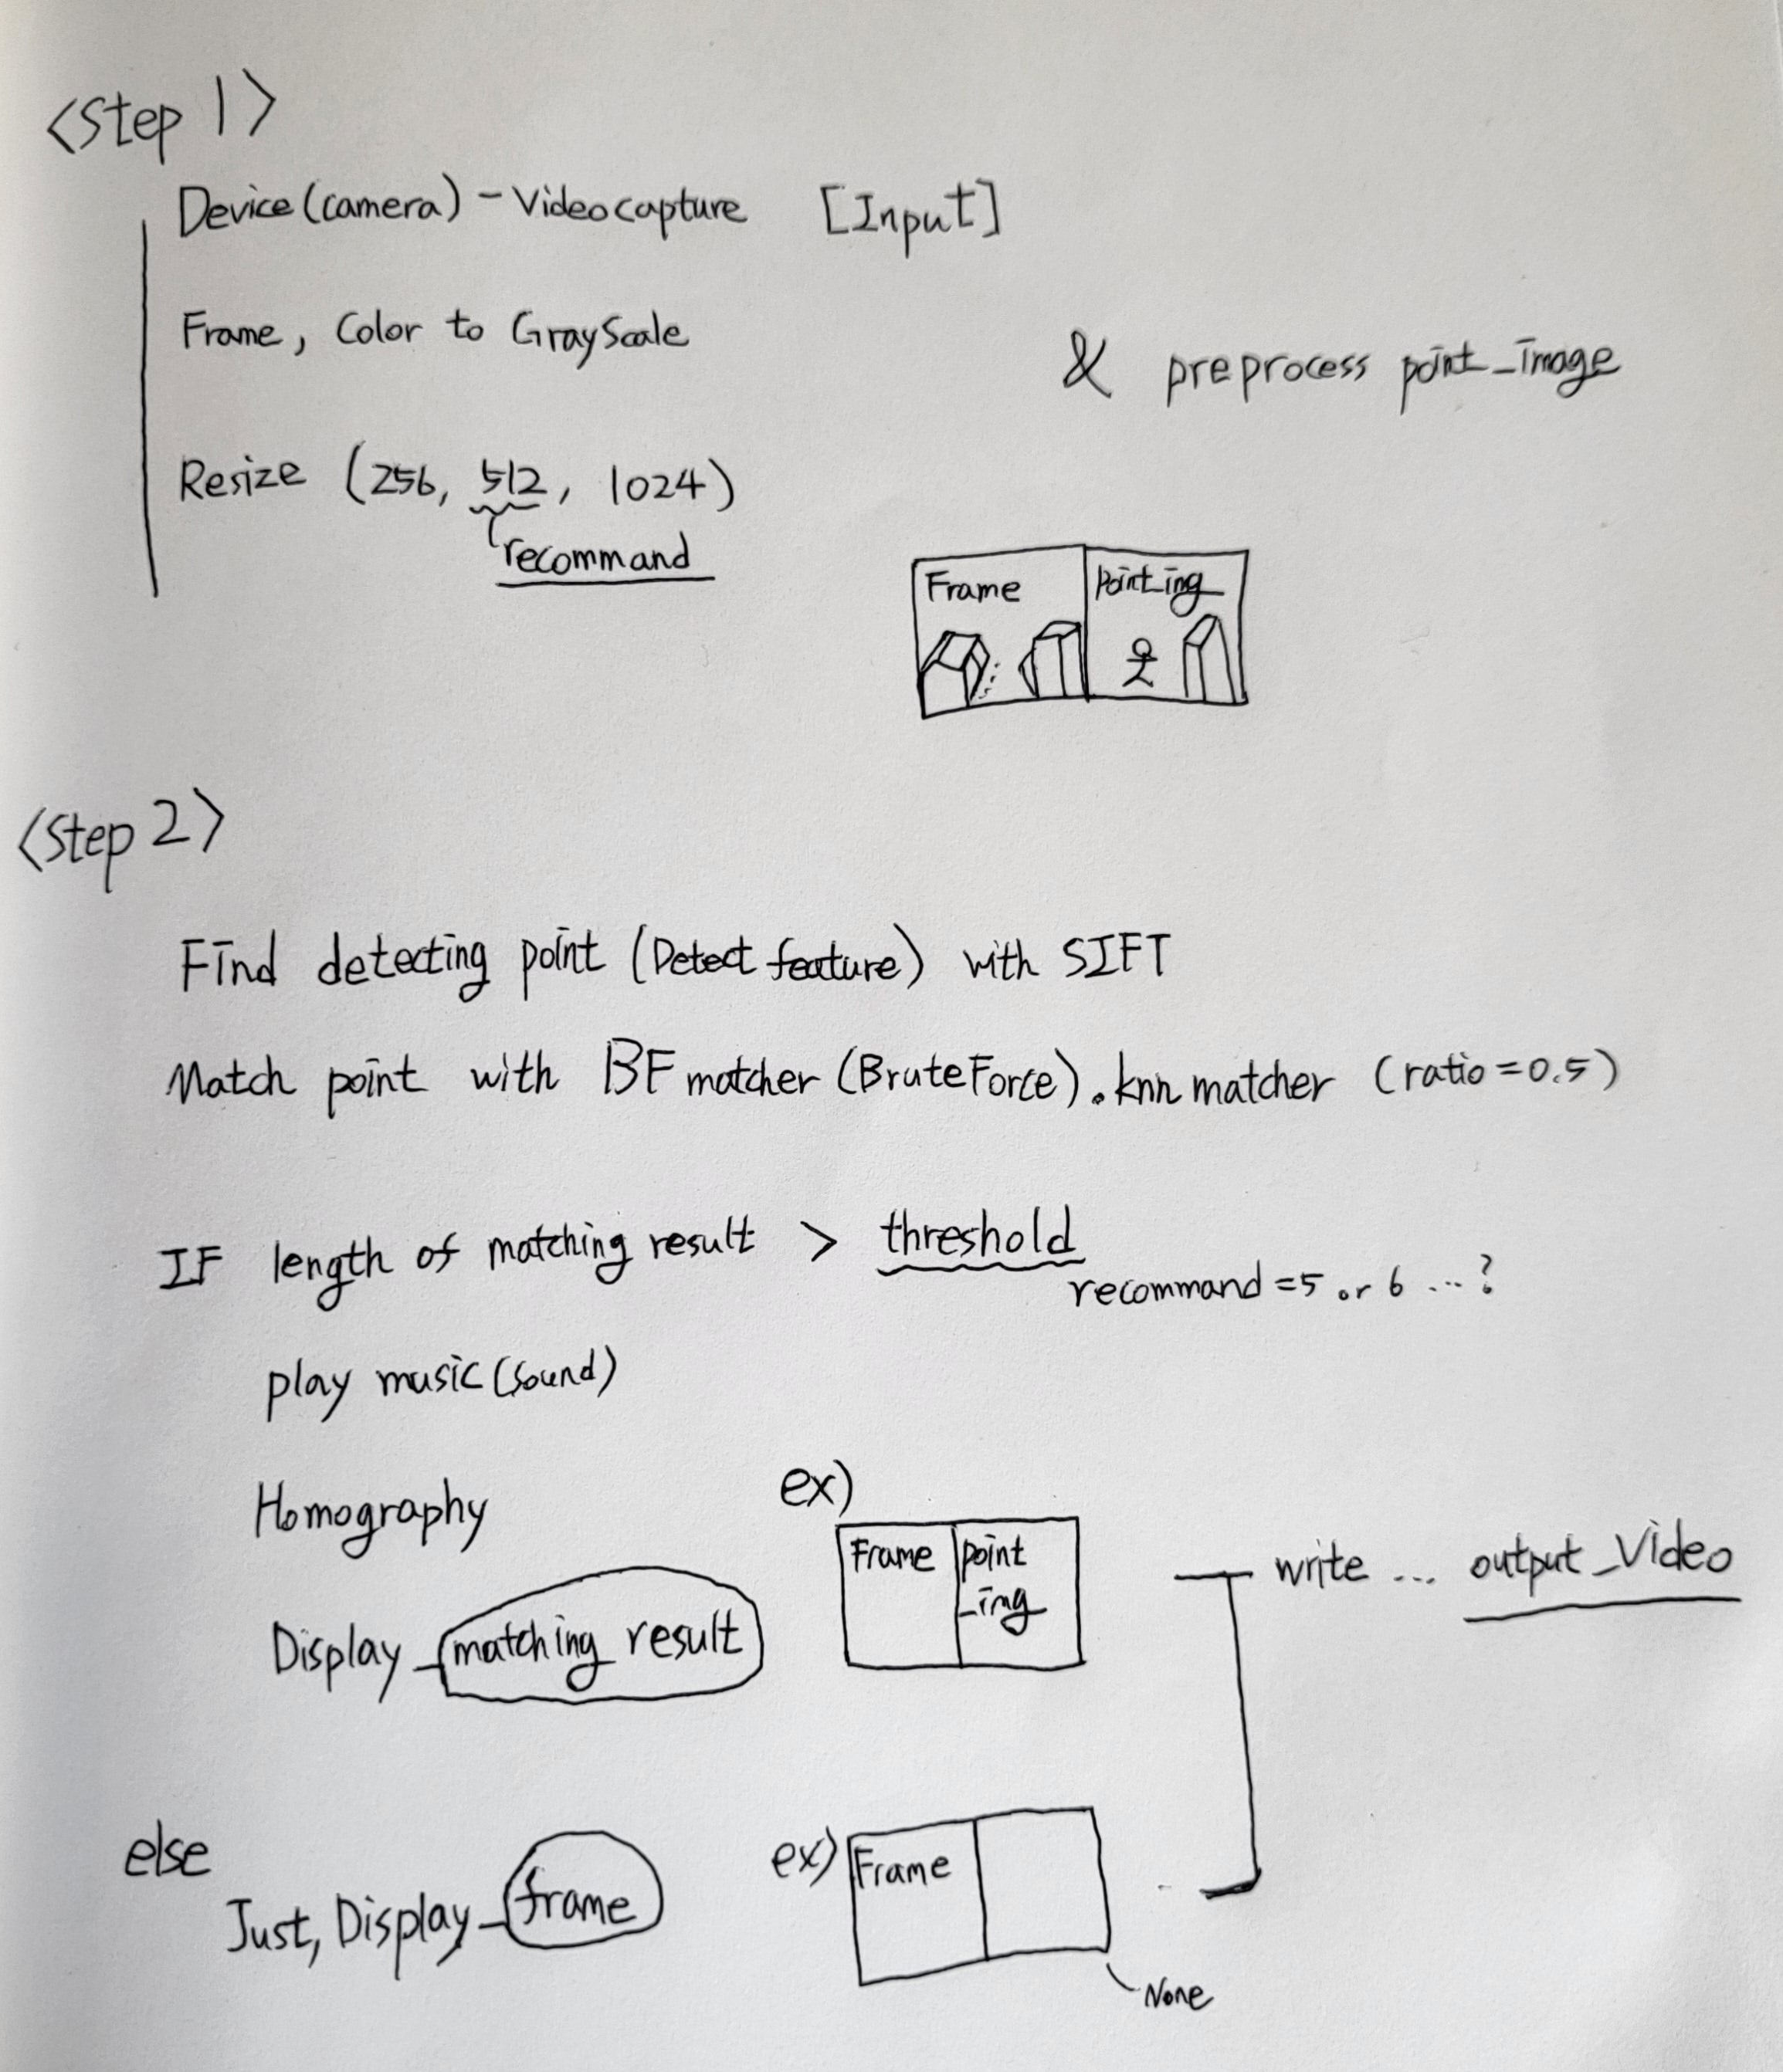 <Step 1>
Device(camera) - Videocapture [Input]
Frame, Color to GrayScale
& preprocess point_image
Resize (256, 512, 1024)
recommand
Frame
Point_img
<Step 2>
Find detecting point (Detect feature) with SIFT
Match point with BF matcher (BruteForce).knn matcher (ratio=0.5)
IF length of matching result > threshold
recommand = 5 or 6 ...?
play music(sound)
Homography
ex)
Frame
point
_img
write ... output_Video
Display_matching result
else
ex)
Frame
Just, Display_frame
None